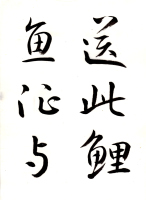 送此鲤
鱼征与